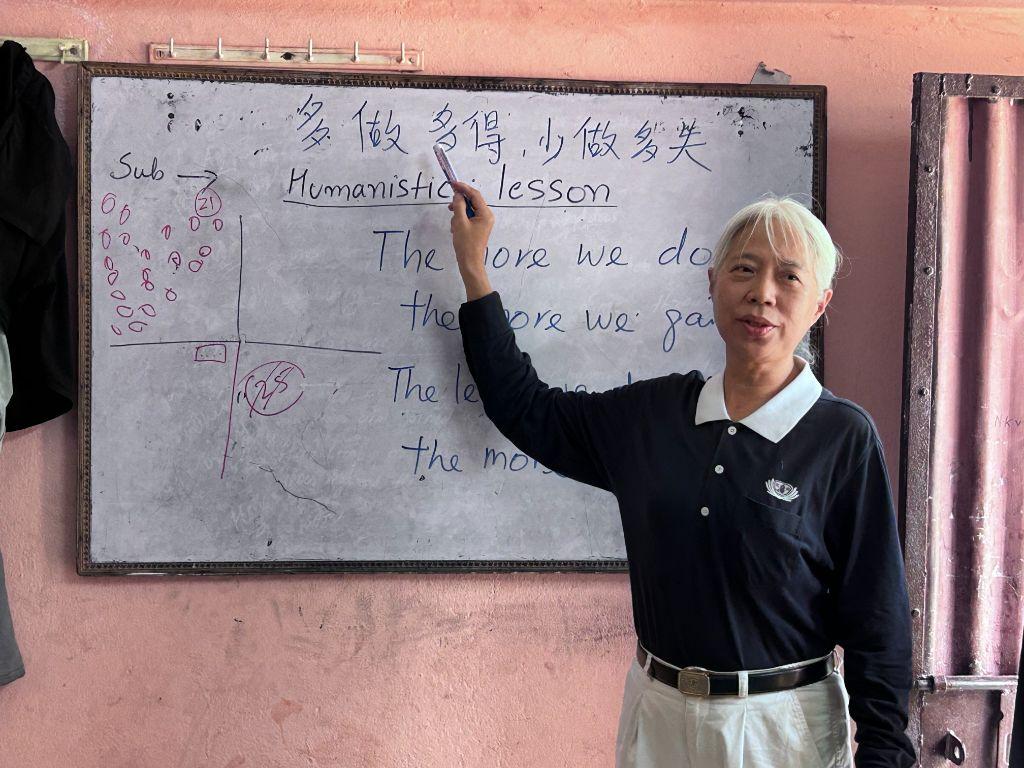 多做多得，少做多失
Sub →
21
Humanistic lesson
The more we do
the more we gai
The le
the mo
28